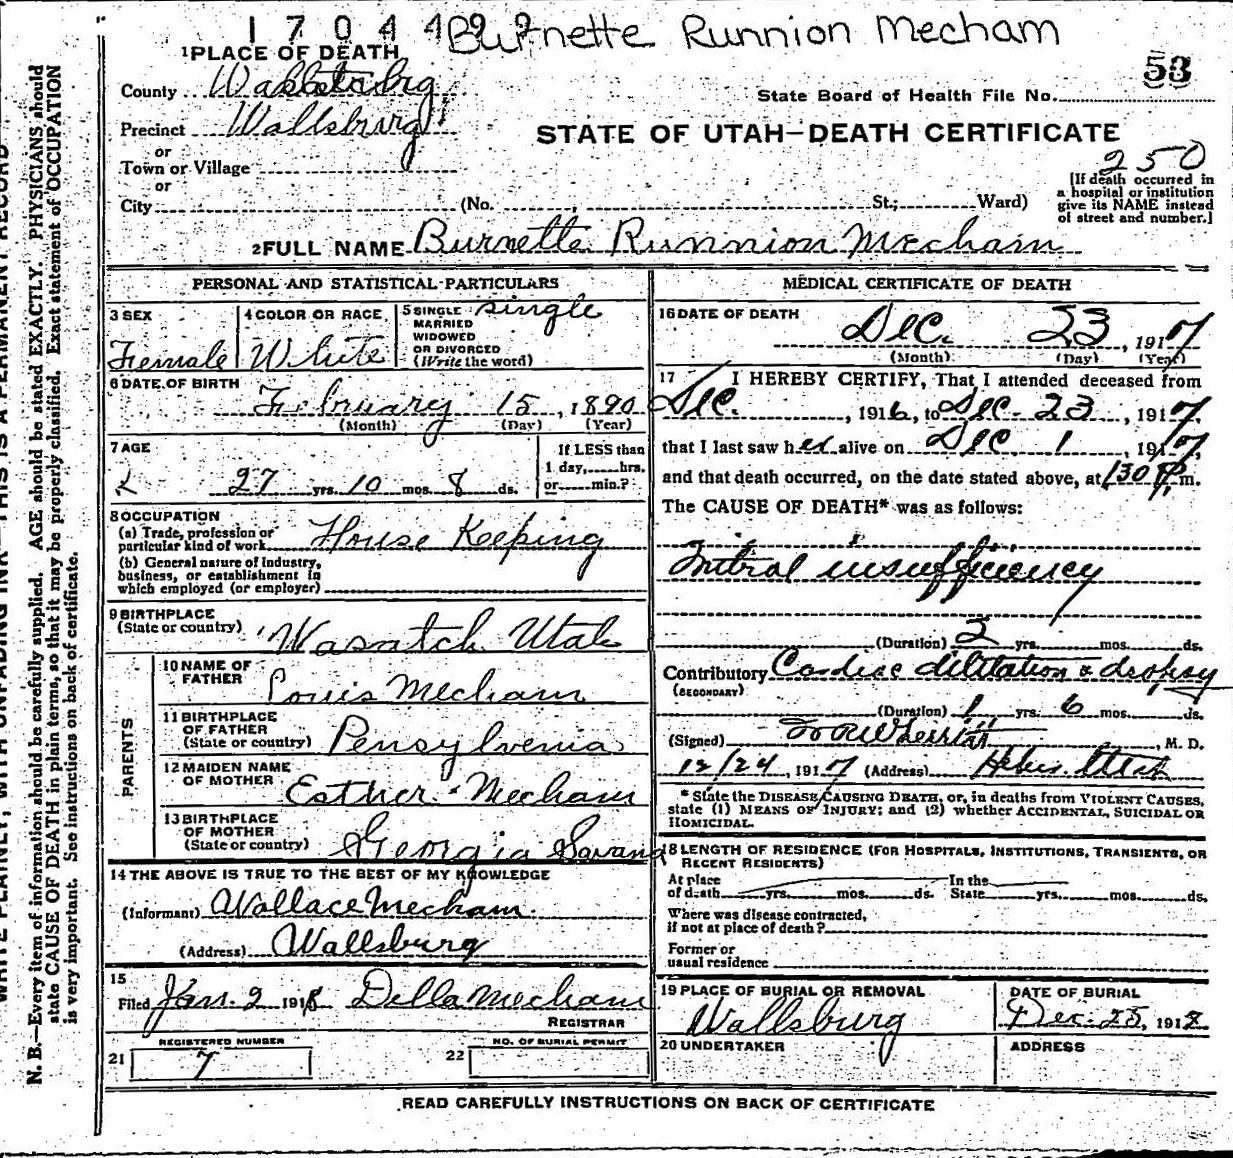 1 7 0 4 4 9 9 Burnette Runnion Mecham
53
1 PLACE OF DEATH
County
State Board of Health File No.
Precinct Wallsburg
STATE OF UTAH—DEATH CERTIFICATE
or
Town or Village
or
250
[If death occurred in
a hospital or institution
give its NAME instead
of street and number.]
City (No. , St.; Ward)
2 FULL NAME Burnette Runnion Mecham
PERSONAL AND STATISTICAL PARTICULARS
3 SEX
Female
4 COLOR OR RACE
White
5 SINGLE single
MARRIED
WIDOWED
OR DIVORCED
(Write the word)
6 DATE OF BIRTH
February 15, 1890
(Month) (Day) (Year)
7 AGE
27 yrs. 10 mos. 8 ds.
If LESS than
1 day, hrs.
or min.?
8 OCCUPATION
(a) Trade, profession or
particular kind of work House Keeping
(b) General nature of industry,
business, or establishment in
which employed (or employer)
9 BIRTHPLACE
(State or country) Wasatch Utah
PARENTS
10 NAME OF
FATHER Louis Mecham
11 BIRTHPLACE
OF FATHER
(State or country) Pensylvenia
12 MAIDEN NAME
OF MOTHER Esther Mecham
13 BIRTHPLACE
OF MOTHER
(State or country) Georgia Savana
14 THE ABOVE IS TRUE TO THE BEST OF MY KNOWLEDGE
(Informant) Wallace Mecham
(Address) Wallsburg
15
Filed Jan. 2 1918 Della Mecham
REGISTRAR
REGISTERED NUMBER
21 7
NO. OF BURIAL PERMIT
22
MEDICAL CERTIFICATE OF DEATH
16 DATE OF DEATH
Dec. 23, 1917
(Month) (Day) (Year)
17 I HEREBY CERTIFY, That I attended deceased from
Dec. , 1916, to Dec. 23, 1917,
that I last saw her alive on Dec 1, 1917,
and that death occurred, on the date stated above, at 130 P. m.
The CAUSE OF DEATH* was as follows:
Mitral insufficiency
(Duration) 2 yrs. mos. ds.
Contributory Cardiac dilitation & dropsy
(SECONDARY)
(Duration) 1 yrs. 6 mos. ds.
(Signed) , M. D.
12/24, 1917 (Address) Heber Utah
* State the DISEASE CAUSING DEATH, or, in deaths from VIOLENT CAUSES,
state (1) MEANS OF INJURY; and (2) whether ACCIDENTAL, SUICIDAL OR
HOMICIDAL.
18 LENGTH OF RESIDENCE (FOR HOSPITALS, INSTITUTIONS, TRANSIENTS, OR
RECENT RESIDENTS)
At place In the
of death yrs. mos. ds. State yrs. mos. ds.
Where was disease contracted,
if not at place of death?
Former or
usual residence
19 PLACE OF BURIAL OR REMOVAL
Wallsburg
DATE OF BURIAL
Dec. 25, 1918
20 UNDERTAKER
ADDRESS
READ CAREFULLY INSTRUCTIONS ON BACK OF CERTIFICATE
N. B.—Every item of information should be carefully supplied. AGE should be stated EXACTLY. PHYSICIANS should
state CAUSE OF DEATH in plain terms, so that it may be properly classified. Exact statement of OCCUPATION
is very important. See instructions on back of certificate.